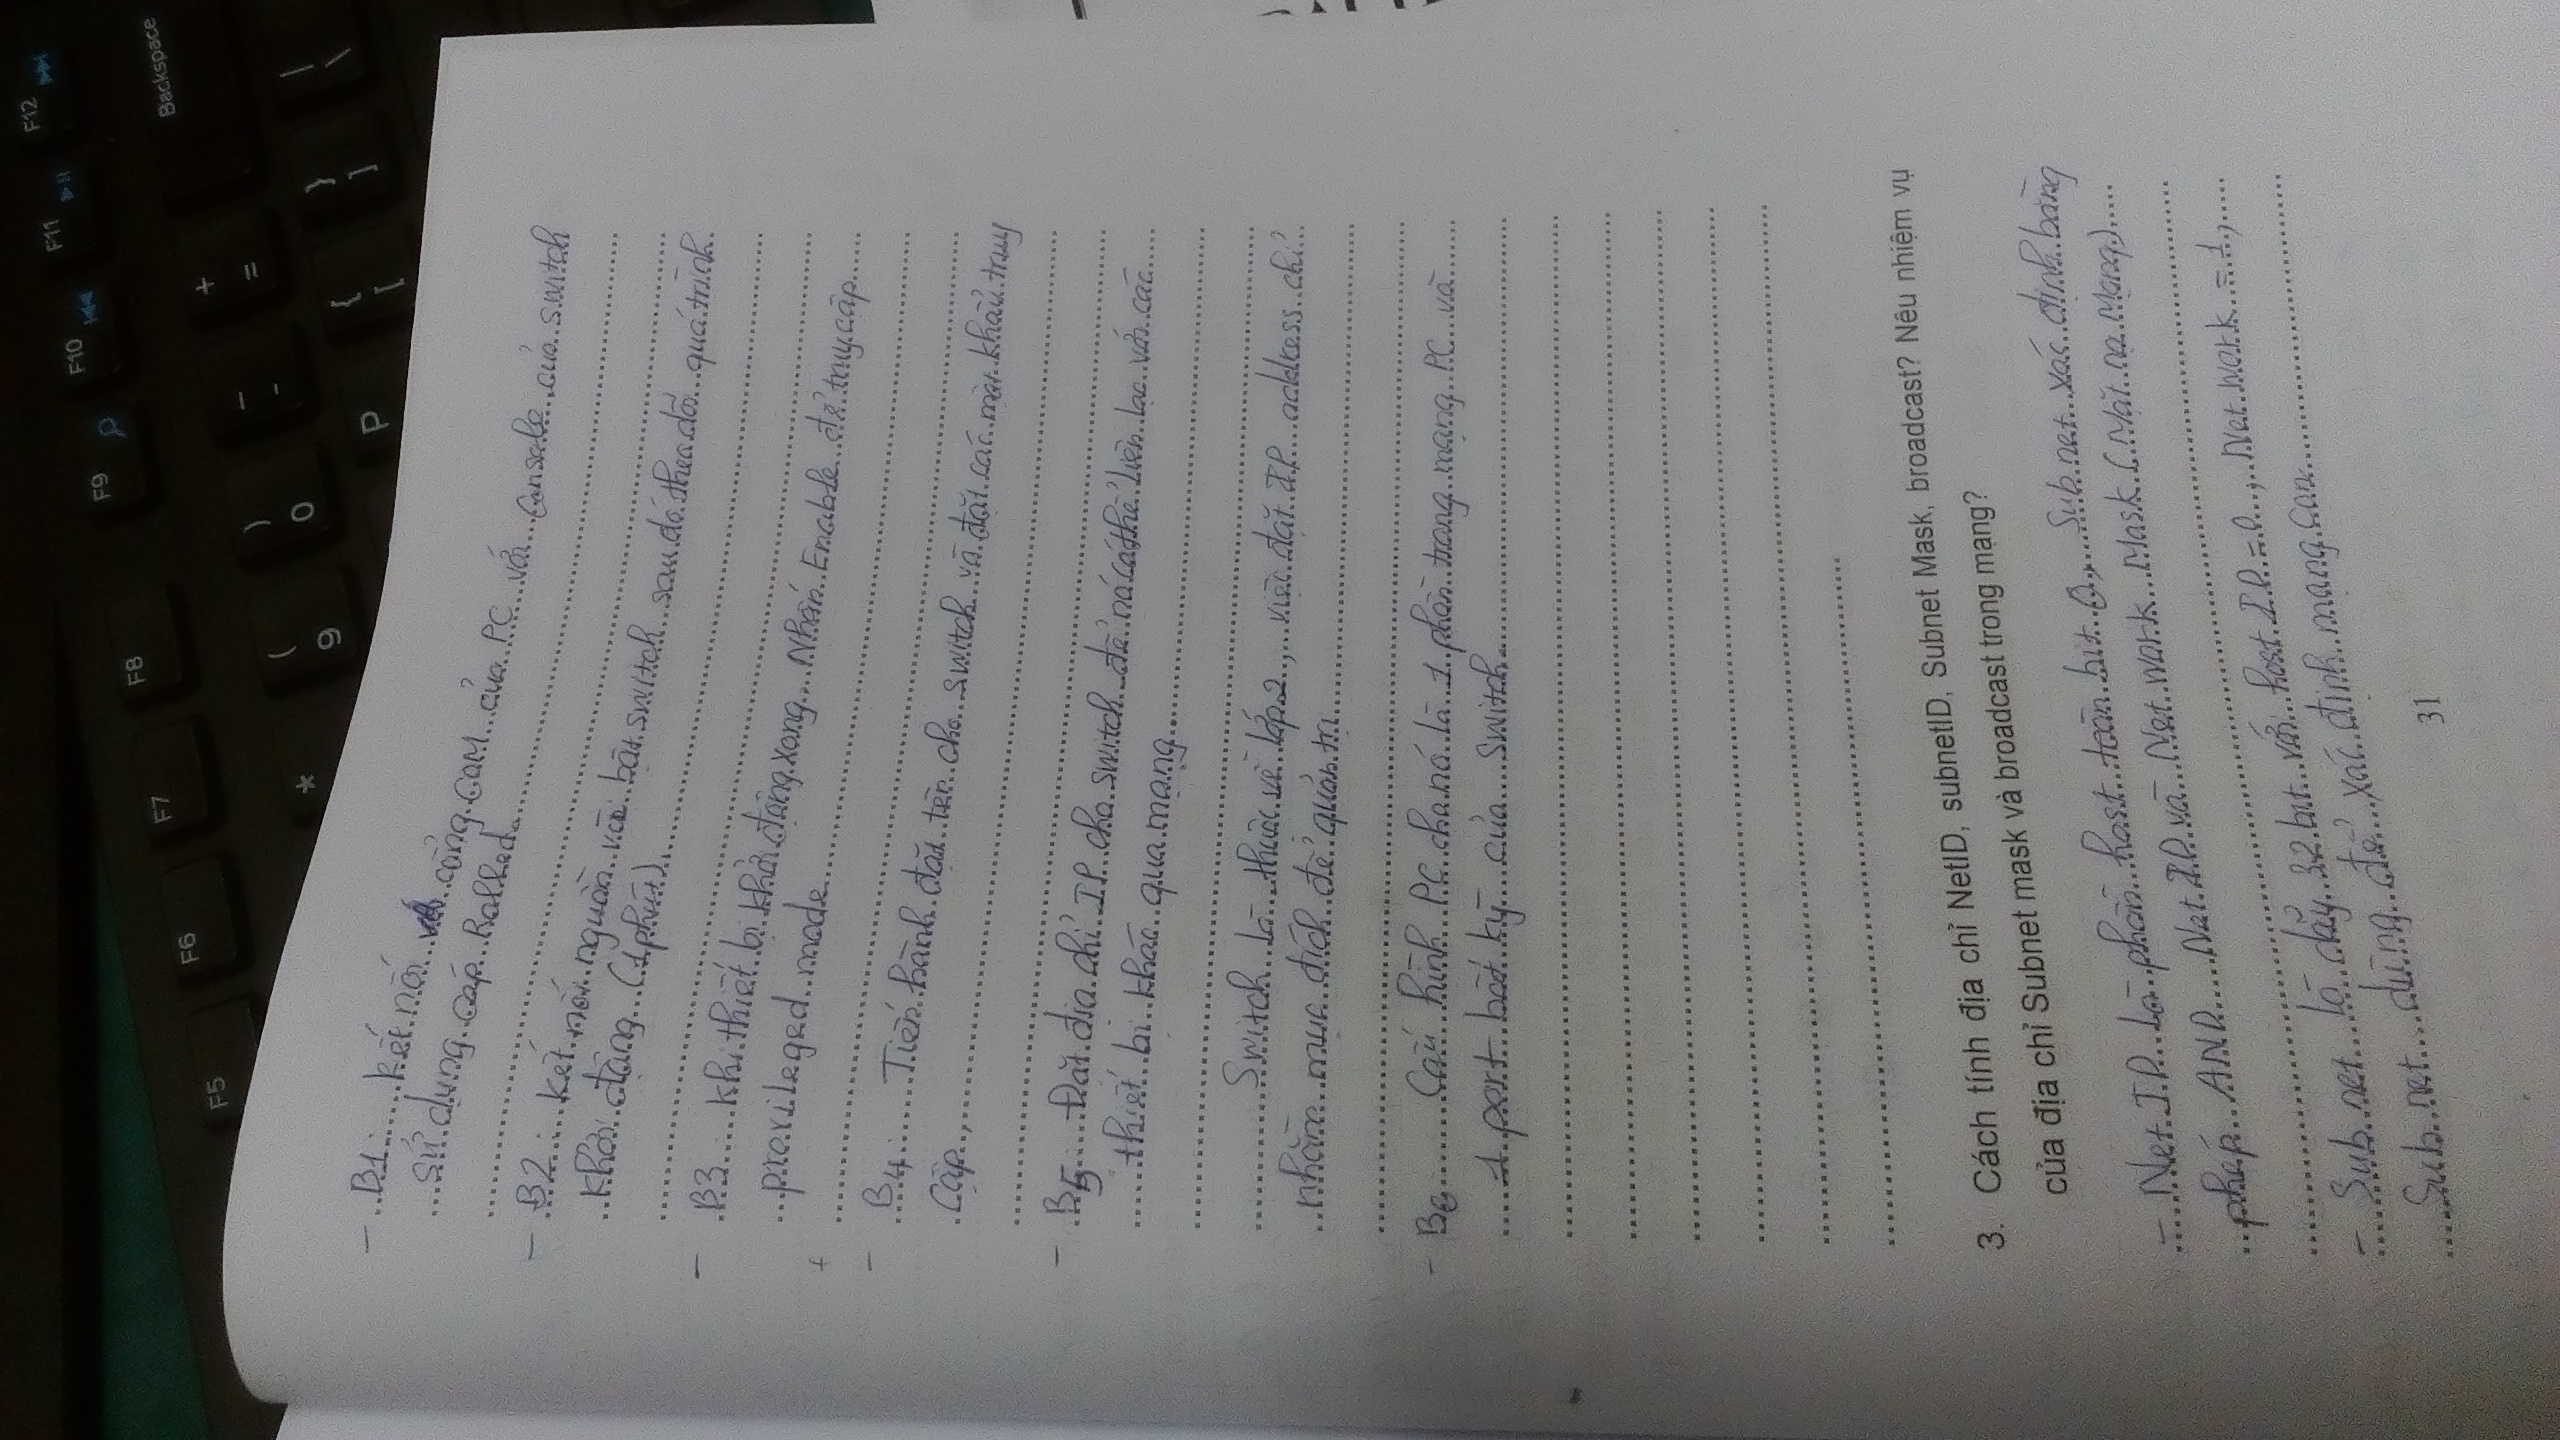 F5 F6 F7 F8 F9 F10 F11 F12
Backspace
* ( 9 ) 0 _ - + =
P { [ } ] | \
- B1: kết nối cổng COM của PC với Console của switch
sử dụng cáp Rolled.
- B2: kết nối nguồn và bật switch sau đó theo dõi quá trình
khởi động (1 phút).
- B3: Khi thiết bị khởi động xong, Nhấn Enable để truy cập
privileged mode
+
- B4: Tiến hành đặt tên cho switch và đặt các mật khẩu truy
cập.
- B5 Đặt địa chỉ IP cho switch để nó có thể liên lạc với các
thiết bị khác qua mạng
Switch là thuộc về lớp 2, việc đặt IP address chỉ
nhằm mục đích để quản trị
- B6 Cấu hình PC cho nó là 1 phần trong mạng PC và
1 port bất kỳ của Switch.
3. Cách tính địa chỉ NetID, subnetID, Subnet Mask, broadcast? Nêu nhiệm vụ
của địa chỉ Subnet mask và broadcast trong mạng?
- Net ID là phần host toàn bit 0, Sub net xác định bằng
phép AND Net ID và Net work Mask (Mặt nạ Mạng)
- Sub net là dãy 32 bit với host ID = 0, Net work = 1,
Sub net dùng để xác định mạng con
31